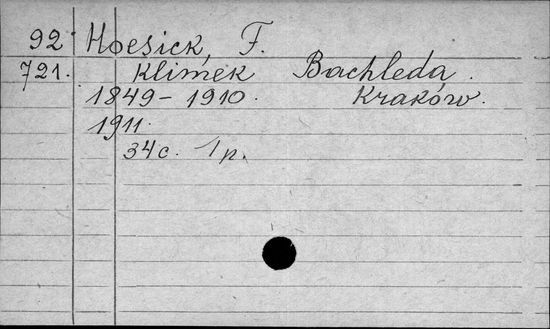 92 Hoesick, F.
721. Klimek Bachleda.
1849-1910. Kraków.
1911.
34c. 1p.